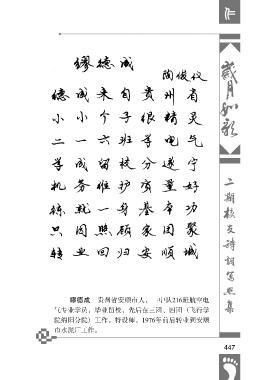 缪德成
陶俊仪
德成来自贵州省
小小个子很精灵
二一六班学电气
学成留校分遂宁
机务维护质量好
练就一身基本功
只因照顾家团聚
转业回归安顺城
缪德成 贵州省安顺市人,
二中队216班航空电
气专业学员,毕业留校,先后在三团、四团(飞行学
院绵阳分院)工作,特设师。1976年前后转业到安顺
市水泥厂工作。
岁月如歌
二期校友诗词写照集
447